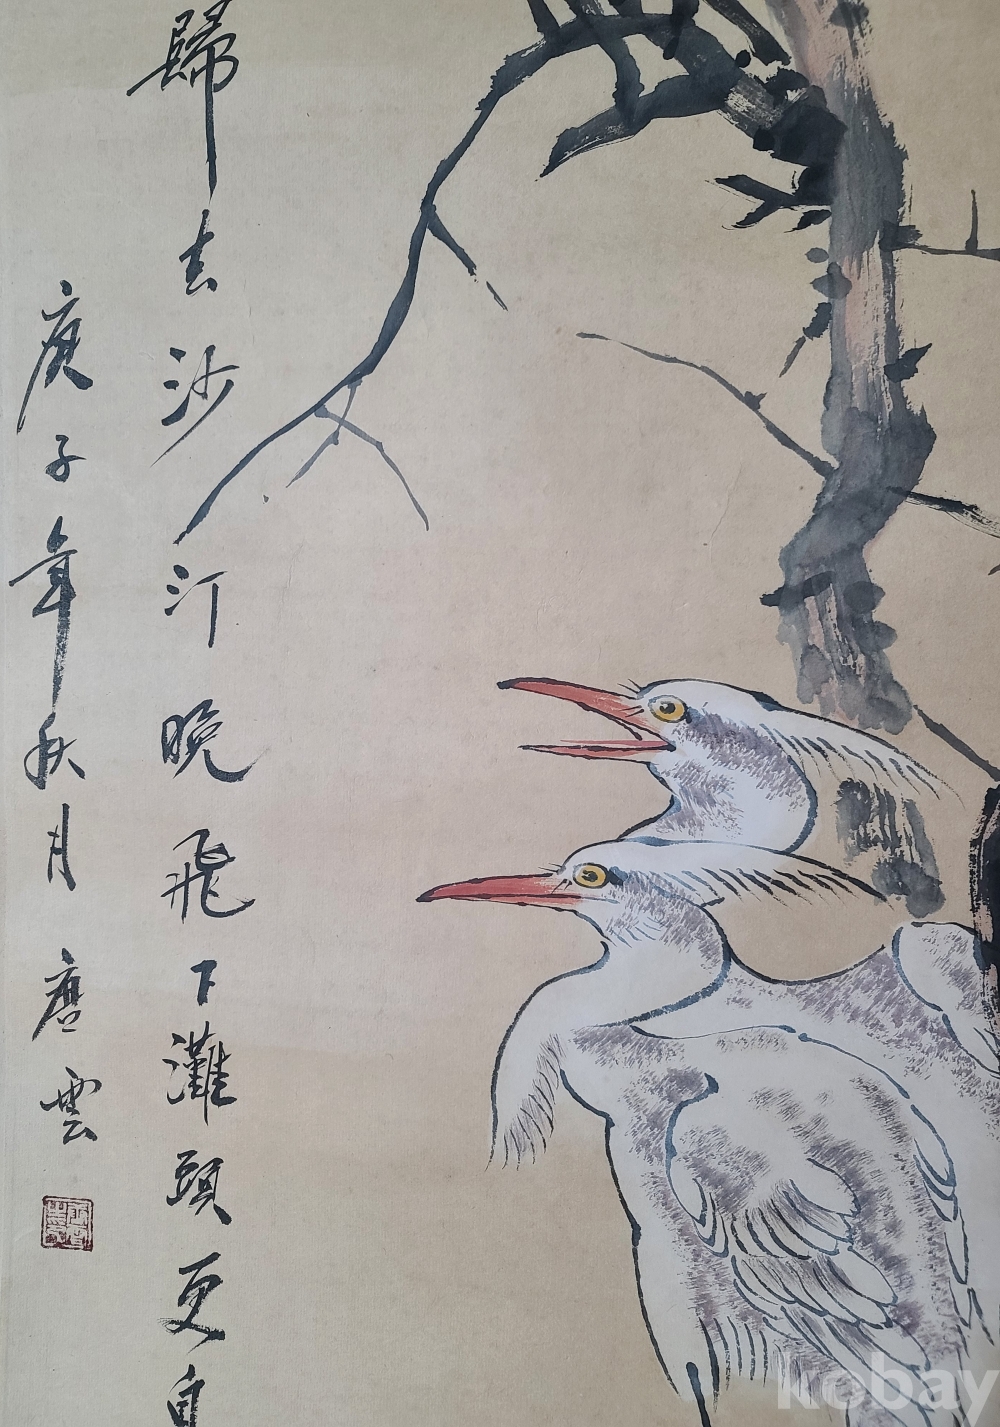 歸去沙汀晚飛下灘頭更自
庚子年秋月 唐雲
kobay